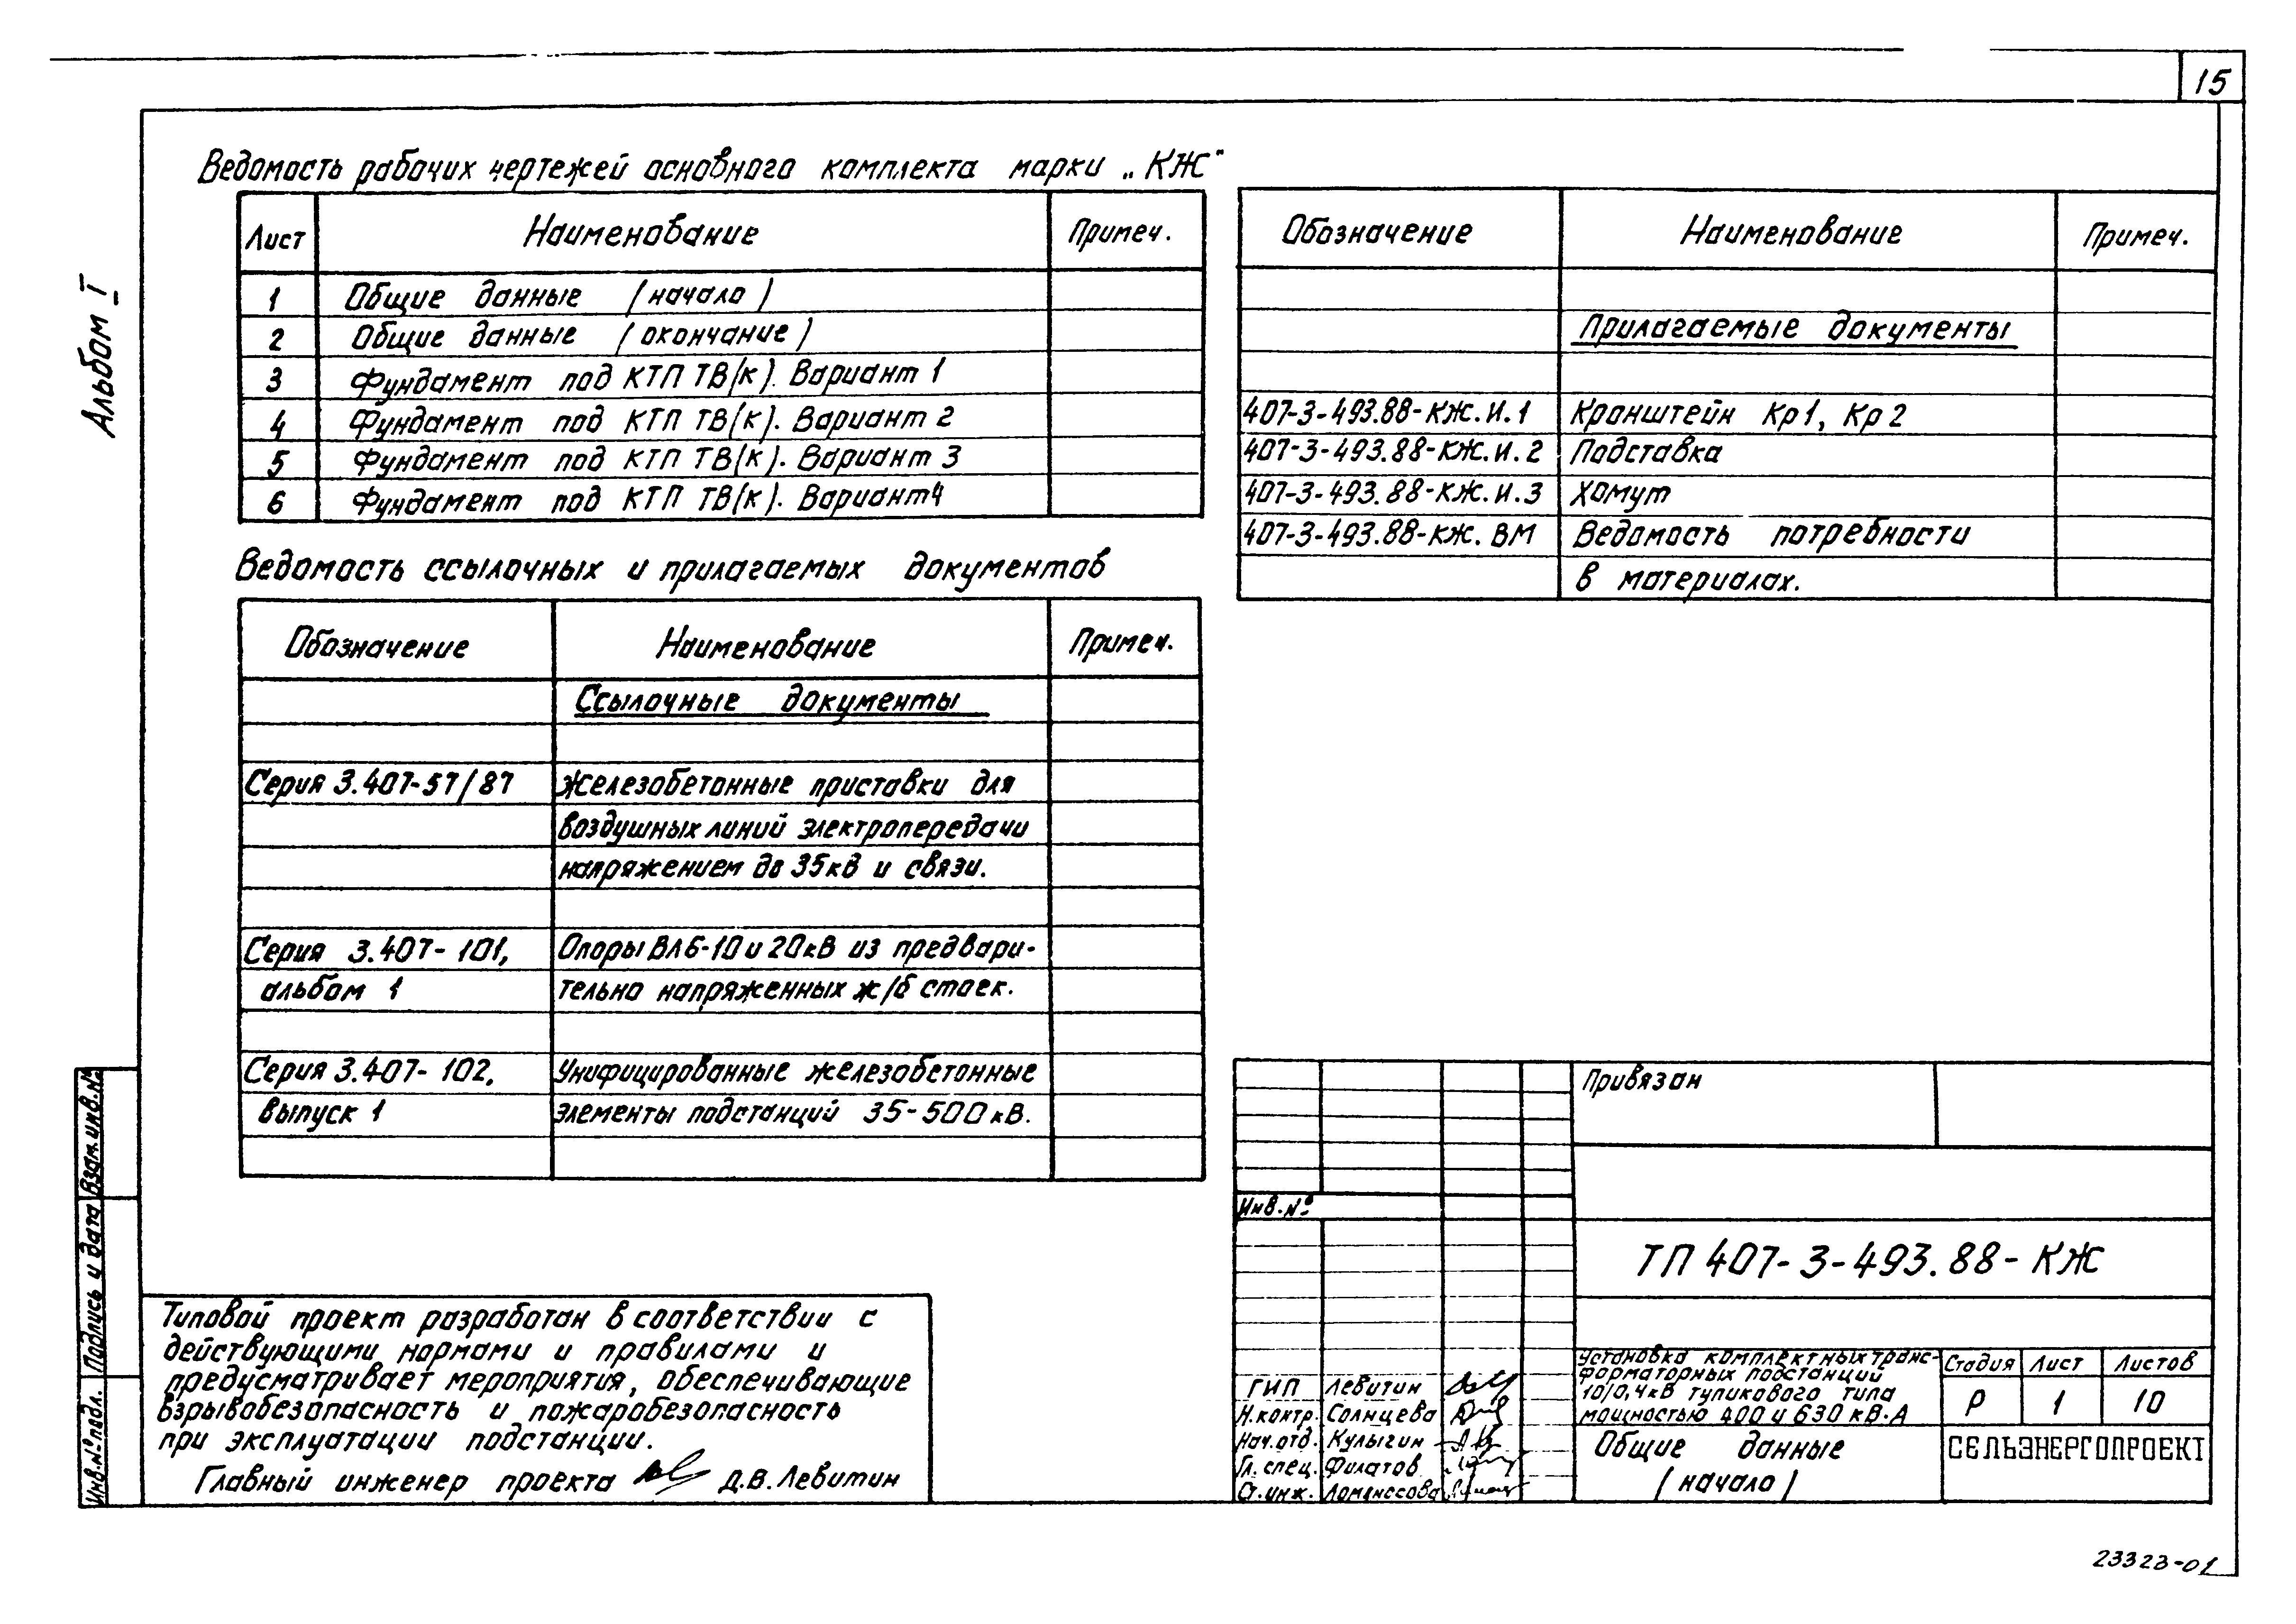 15
Альбом I
Ведомость рабочих чертежей основного комплекта марки „КЖ"
Лист Наименование Примеч.
1 Общие данные (начало)
2 Общие данные (окончание)
3 Фундамент под КТП ТВ(К). Вариант 1
4 Фундамент под КТП ТВ(К). Вариант 2
5 Фундамент под КТП ТВ(К). Вариант 3
6 Фундамент под КТП ТВ(К). Вариант 4
Ведомость ссылочных и прилагаемых документов
Обозначение Наименование Примеч.
Ссылочные документы
Серия 3.407-57/87 Железобетонные приставки для
воздушных линий электропередачи
напряжением до 35кВ и связи.
Серия 3.407-101, Опоры ВЛ6-10 и 20кВ из предвари-
альбом 1 тельно напряженных ж/б стоек.
Серия 3.407-102, Унифицированные железобетонные
выпуск 1 элементы подстанций 35-500кВ.
Обозначение Наименование Примеч.
Прилагаемые документы
407-3-493.88-КЖ.И.1 Кронштейн Кр1, Кр2
407-3-493.88-КЖ.И.2 Подставка
407-3-493.88-КЖ.И.3 Хомут
407-3-493.88-КЖ.ВМ Ведомость потребности
в материалах.
Типовой проект разработан в соответствии с
действующими нормами и правилами и
предусматривает мероприятия, обеспечивающие
взрывобезопасность и пожаробезопасность
при эксплуатации подстанции.
Главный инженер проекта Д.В.Левитин
Взам.инв.№
Подпись и дата
Инв.№ подл.
Привязан
Инв.№
ТП 407-3-493.88-КЖ
ГИП Левитин
Н.контр. Солнцева
Нач.отд. Кулыгин
Гл.спец. Филатов
Ст.инж.
Установка комплектных транс-
форматорных подстанций
10/0,4кВ тупикового типа
мощностью 400 и 630 кВ·А
Стадия Лист Листов
Р 1 10
Общие данные
(начало)
СЕЛЬЭНЕРГОПРОЕКТ
23323-01